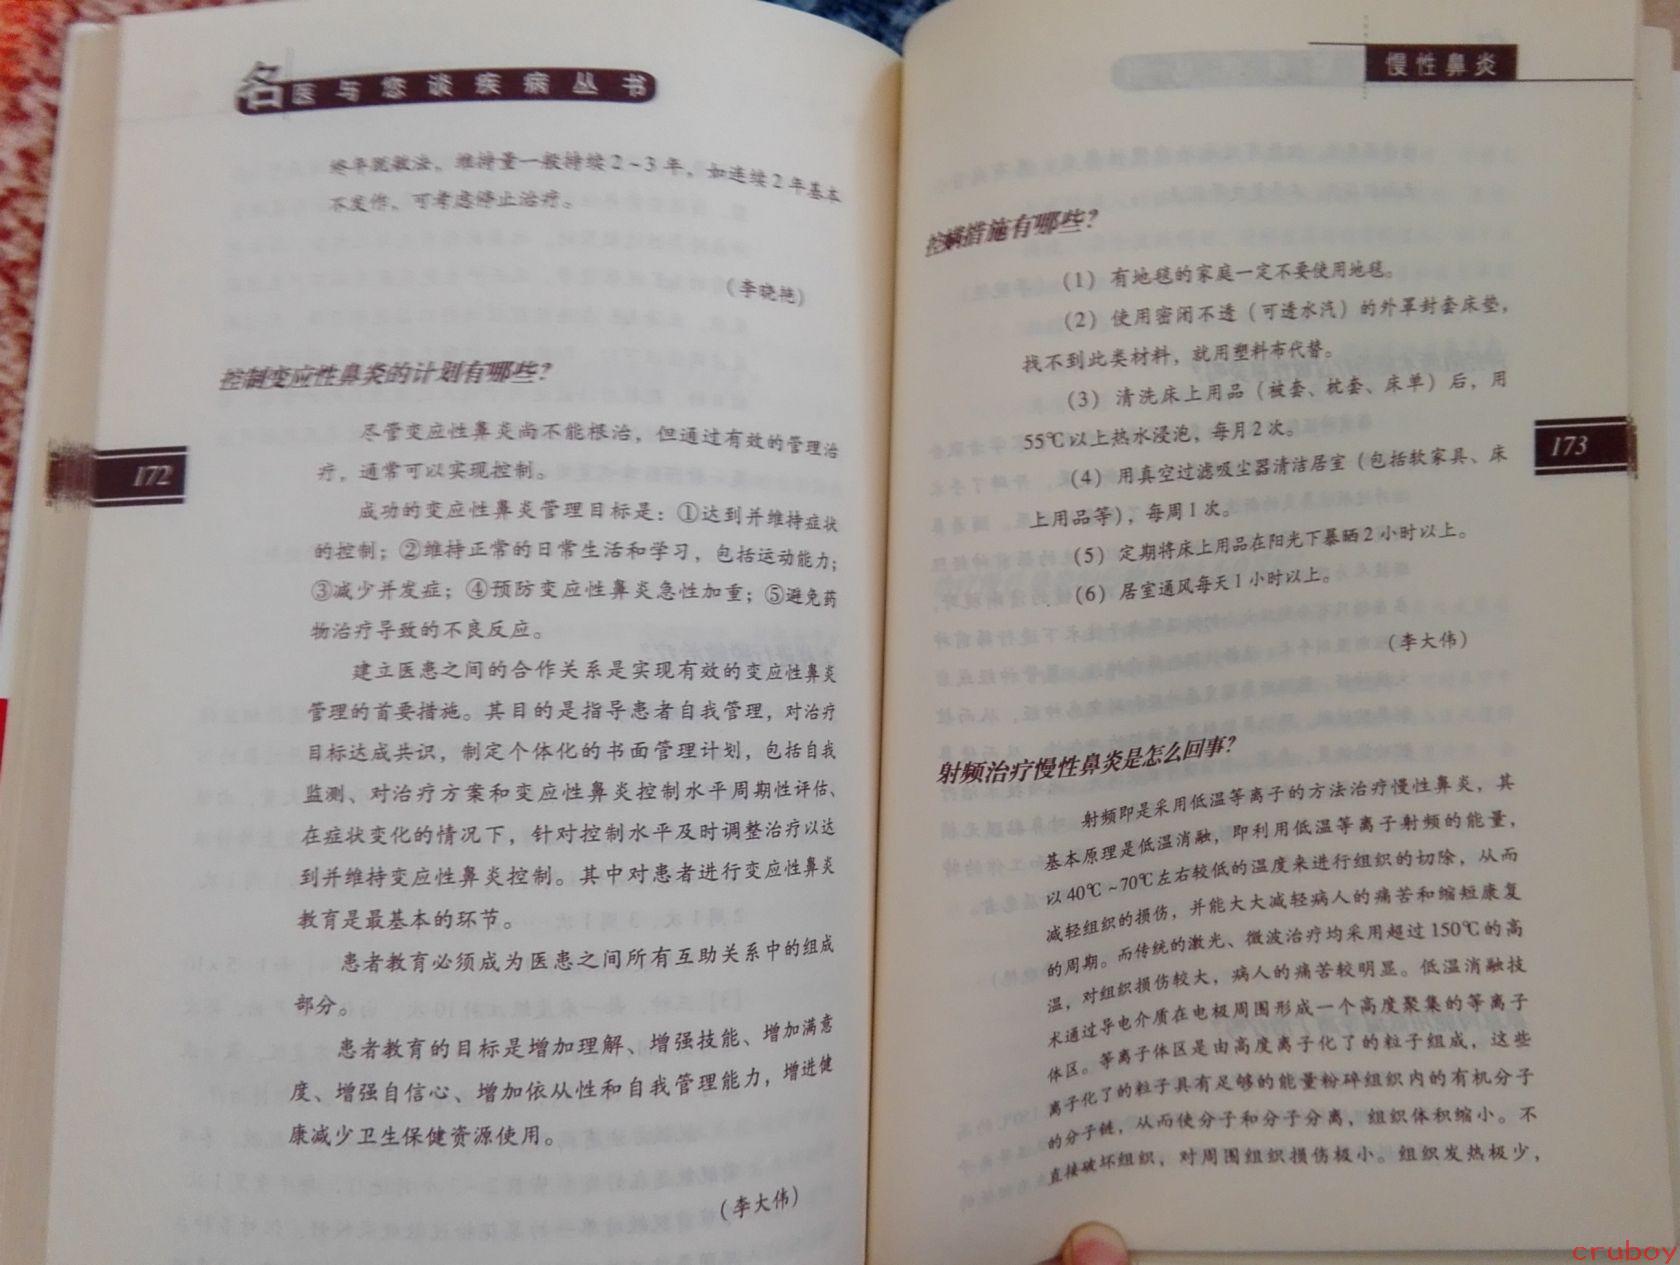 名医与您谈疾病丛书
终年脱敏法，维持量一般持续2~3年，如连续2年基本
不发作，可考虑停止治疗。
（李晓艳）
控制变应性鼻炎的计划有哪些？
尽管变应性鼻炎尚不能根治，但通过有效的管理治
疗，通常可以实现控制。
成功的变应性鼻炎管理目标是：①达到并维持症状
的控制；②维持正常的日常生活和学习，包括运动能力；
③减少并发症；④预防变应性鼻炎急性加重；⑤避免药
物治疗导致的不良反应。
建立医患之间的合作关系是实现有效的变应性鼻炎
管理的首要措施。其目的是指导患者自我管理，对治疗
目标达成共识，制定个体化的书面管理计划，包括自我
监测、对治疗方案和变应性鼻炎控制水平周期性评估、
在症状变化的情况下，针对控制水平及时调整治疗以达
到并维持变应性鼻炎控制。其中对患者进行变应性鼻炎
教育是最基本的环节。
患者教育必须成为医患之间所有互助关系中的组成
部分。
患者教育的目标是增加理解、增强技能、增加满意
度、增强自信心、增加依从性和自我管理能力，增进健
康减少卫生保健资源使用。
（李大伟）
172
慢性鼻炎
控螨措施有哪些？
（1）有地毯的家庭一定不要使用地毯。
（2）使用密闭不透（可透水汽）的外罩封套床垫，
找不到此类材料，就用塑料布代替。
（3）清洗床上用品（被套、枕套、床单）后，用
55℃以上热水浸泡，每月2次。
（4）用真空过滤吸尘器清洁居室（包括软家具、床
上用品等），每周1次。
（5）定期将床上用品在阳光下暴晒2小时以上。
（6）居室通风每天1小时以上。
（李大伟）
射频治疗慢性鼻炎是怎么回事？
射频即是采用低温等离子的方法治疗慢性鼻炎，其
基本原理是低温消融，即利用低温等离子射频的能量，
以40℃~70℃左右较低的温度来进行组织的切除，从而
减轻组织的损伤，并能大大减轻病人的痛苦和缩短康复
的周期。而传统的激光、微波治疗均采用超过150℃的高
温，对组织损伤较大，病人的痛苦较明显。低温消融技
术通过导电介质在电极周围形成一个高度聚集的等离子
体区。等离子体区是由高度离子化了的粒子组成，这些
离子化了的粒子具有足够的能量粉碎组织内的有机分子
的分子链，从而使分子和分子分离，组织体积缩小。不
直接破坏组织，对周围组织损伤极小。组织发热极少，
173
cruboy